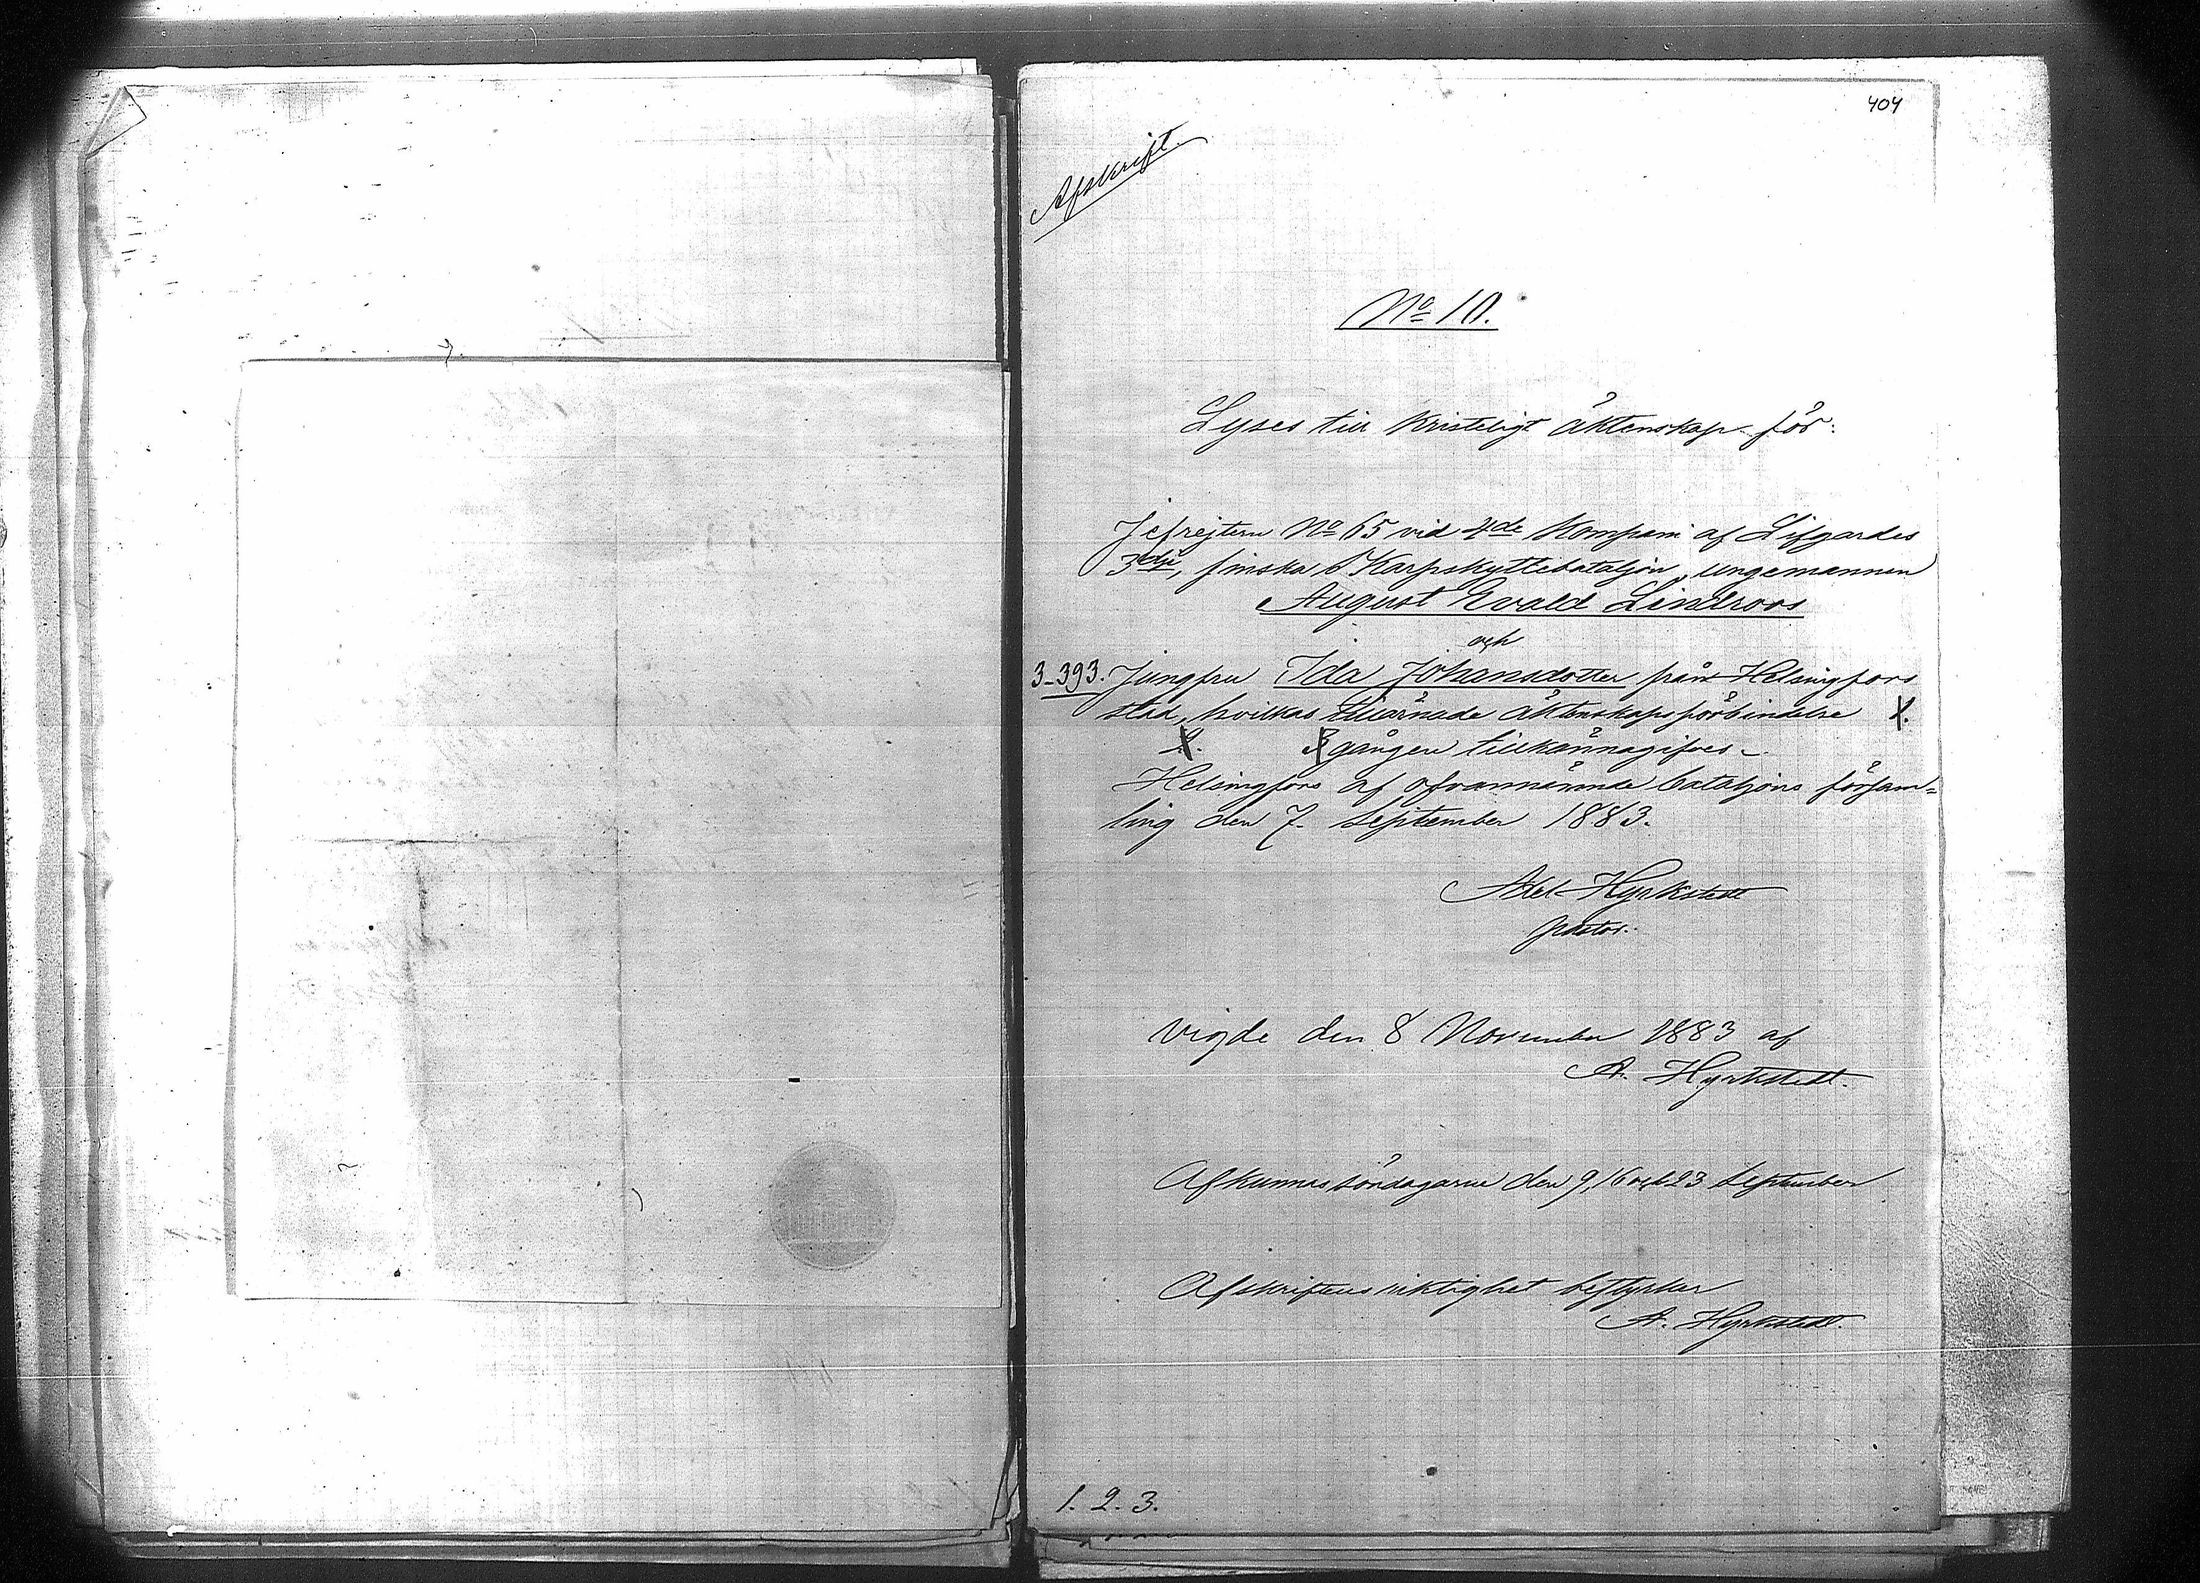 404
Afskrift.
No 10.
Lyses till kristeligt äktenskap för:
Jefrejtern No 65 vid 4de Kompani af Lifgardes
3dje, finska Skarpskyttebataljon, ungemannen
August Evald Lindroos
och
3-393. Jungfru Ida Johansdotter från Helsingfors
stad, hvilkas ämnade äktenskapsförbindelse 1.
2. 3 gången tillkännagifves.
Helsingfors af ofvannämnde bataljons försam=
ling den 7. september 1883.
Axel Hyrkstedt
pastor.
Vigde den 8 November 1883 af
A. Hyrkstedt.
Afkunnas söndagarne den 9, 16 och 23 september
Afskriftens riktighet bestyrker
A. Hyrkstedt.
1. 2. 3.